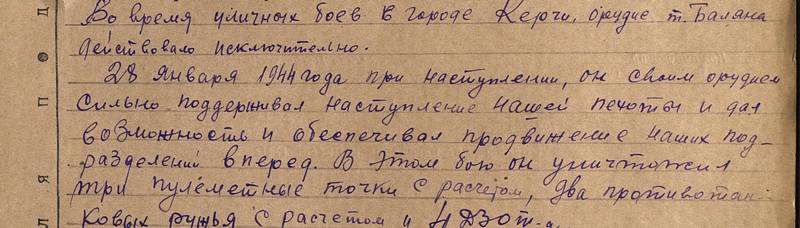 Во время уличных боев в городе Керчи, орудие т. Баляна
действовало исключительно.
28 января 1944 года при наступлении, он своим орудием
сильно поддерживал наступление нашей пехоты и дал
возможность и обеспечивал продвижение наших под-
разделений вперед. В этом бою он уничтожил
три пулеметные точки с расчетом, два противотан-
ковых ружья с расчетом и 4 ДЗОТ-а
д
о
п
я
л